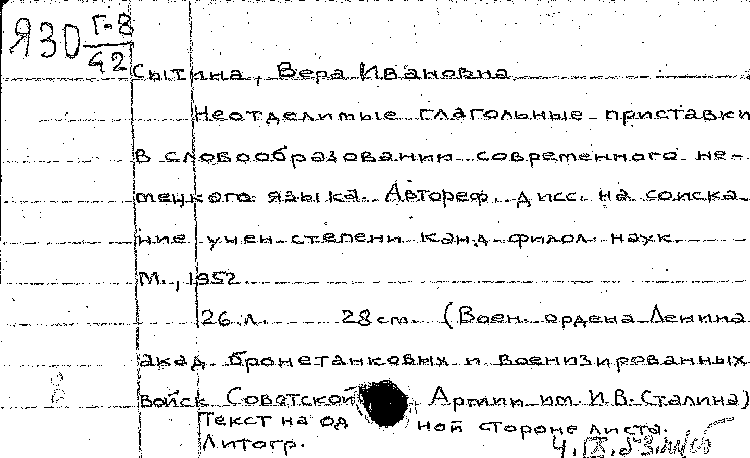 Я30 Г-8
42
Сытина, Вера Ивановна
Неотделимые глагольные приставки
в словообразовании современного не-
мецкого языка. Автореф. дисс. на соиска-
ние учен степени канд. филол. наук.
М., 1952.
26 л. 28 см. (Воен. ордена Ленина
акад. бронетанковых и военизированных
войск Советской Армии им. И.В. Сталина)
Текст на одной стороне листа.
Литогр.